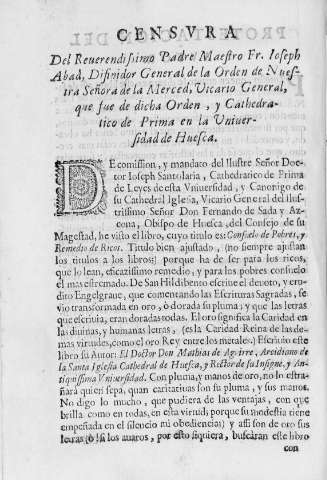 CENSVRA
Del Reuerendissimo Padre Maestro Fr. Ioseph
Abad, Difinidor General de la Orden de Nues-
tra Señora de la Merced, Vicario General,
que fue de dicha Orden, y Cathedra-
tico de Prima en la Vniuer-
sidad de Huesca.
DE comission, y mandato del Ilustre Señor Doc-
tor Ioseph Santolaria, Cathedratico de Prima
de Leyes de esta Vniuersidad, y Canonigo de
su Cathedral Iglesia, Vicario General del Ilus-
trissimo Señor Don Fernando de Sada y Az-
cona, Obispo de Huesca, del Consejo de su
Magestad, he visto el libro, cuyo titulo es: Consuelo de Pobres, y
Remedio de Ricos. Titulo bien ajustado, (no siempre ajustan
los titulos a los libros) porque ha de ser para los ricos,
que lo lean, eficazissimo remedio, y para los pobres consuelo
el mas estremado. De San Hildiberto escriue el deuoto, y eru-
dito Engelgraue, que comentando las Escrituras Sagradas, se
vio transformada en oro, ò dorada su pluma; y que las letras
que escriuia, eran doradas todas. El oro significa la Caridad en
las diuinas, y humanas letras, (es la Caridad Reina de las de-
mas virtudes, como el oro Rey entre los metales.) Escriuio este
libro su Autor: El Doctor Don Mathias de Agirre, Arcidiano de
la Santa Iglesia Cathedral de Huesca, y Rector de su Insigne, y An-
tiquissima Vniuersidad. Con pluma, y manos de oro, no lo estra-
ñará quien sepa, quan caritatiuas son su pluma, y sus manos.
No digo lo mucho, que pudiera de las ventajas, con que
brilla como en todas, en esta virtud; porque su modestia tiene
empeñada en el silencio mi obediencia; y assi son de oro sus
letras (ò si los auaros, por esto siquiera, buscàran este libro
con